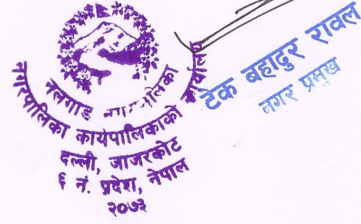 नलगाड नगरपालिका
नगरपालिका कार्यपालिकाको कार्यालय
दल्ली, जाजरकोट
६ नं. प्रदेश, नेपाल
२०७३
टेक बहादुर रावल
नगर प्रमुख